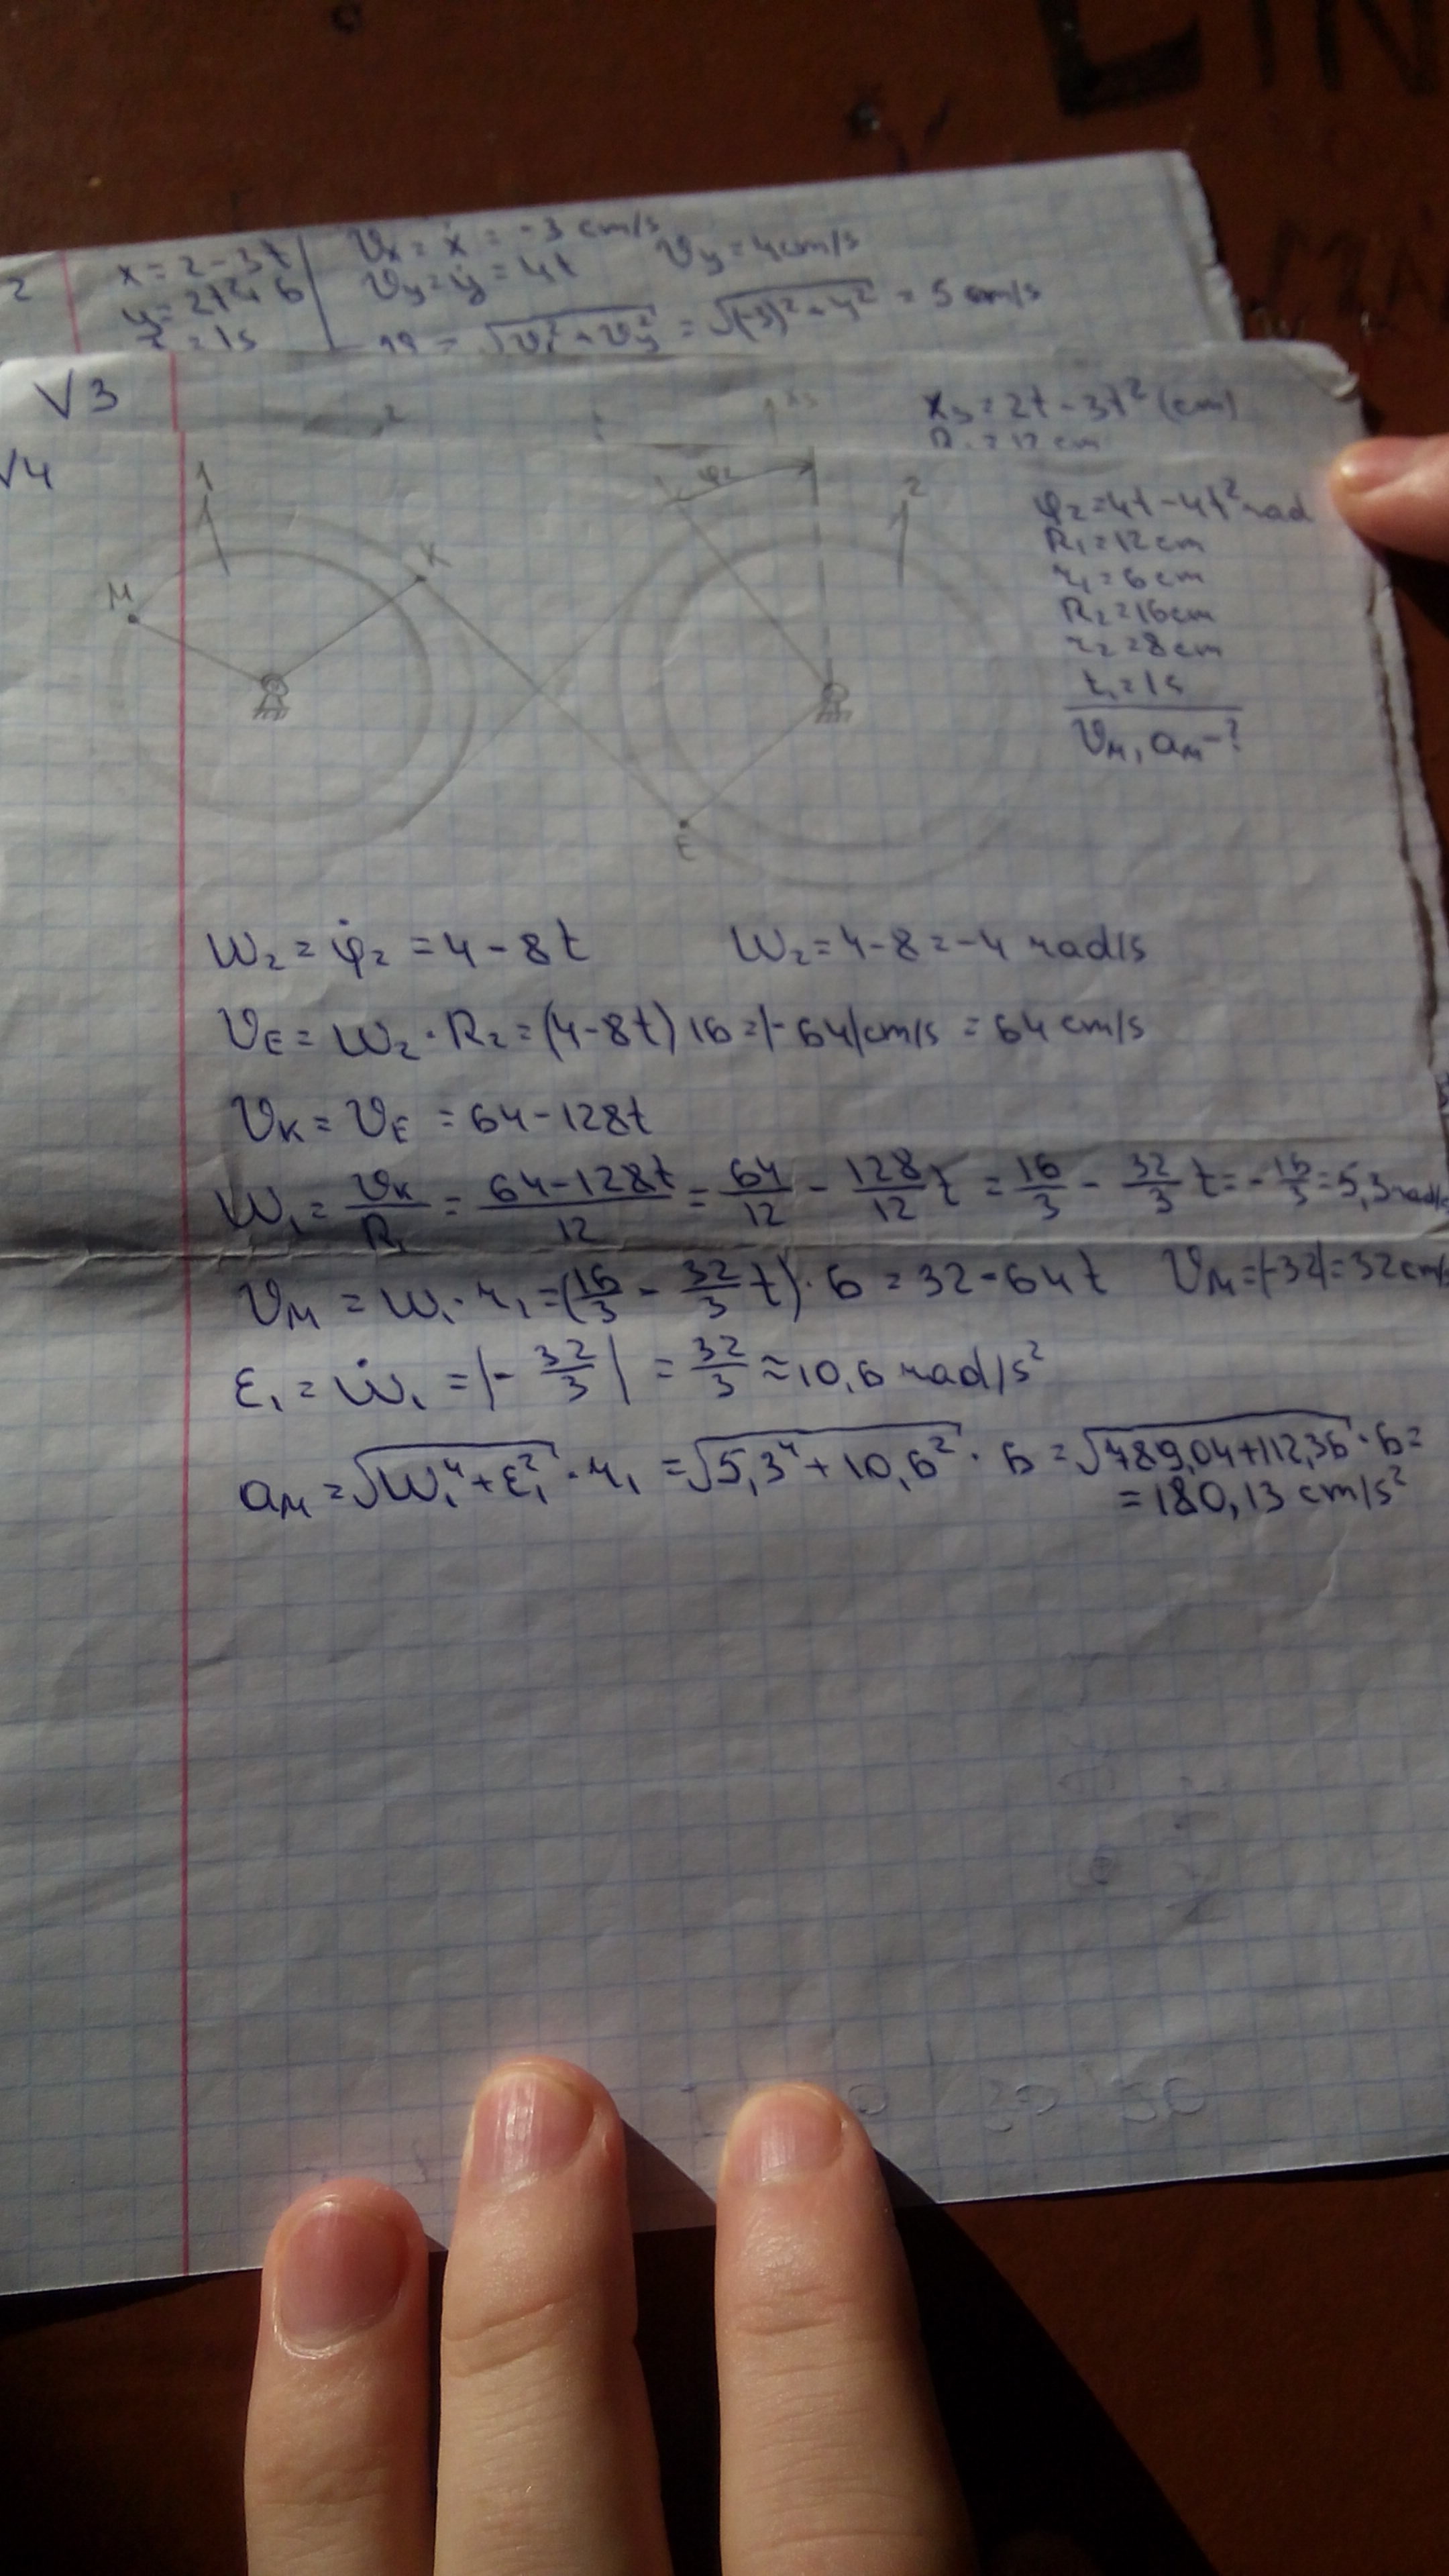 2
x = 2 - 3t
y = 2t² + 6
t = 1s
υx = ẋ = -3 cm/s
υy = ẏ = 4t υy = 4 cm/s
υ = √(υx² + υy²) = √((-3)² + 4²) = 5 cm/s
√3
x₃ = 2t - 3t² (cm)
√4
1
M
K
φ2
2
E
φ₂ = 4t - 4t² rad
R₁ = 12 cm
r₁ = 6 cm
R₂ = 16 cm
r₂ = 8 cm
t₁ = 1s
υM, aM - ?
ω₂ = φ̇₂ = 4 - 8t ω₂ = 4 - 8 = -4 rad/s
υE = ω₂ · R₂ = (4 - 8t) 16 = |-64| cm/s = 64 cm/s
υK = υE = 64 - 128t
ω₁ = υK/R₁ = (64 - 128t)/12 = 64/12 - 128/12 t = 16/3 - 32/3 t = -16/3 = 5,3 rad/s
υM = ω₁ · r₁ = (16/3 - 32/3 t) · 6 = 32 - 64t υM = |-32| = 32 cm/s
ε₁ = ω̇₁ = |-32/3| = 32/3 ≈ 10,6 rad/s²
aM = √(ω₁⁴ + ε₁²) · r₁ = √(5,3⁴ + 10,6²) · 6 = √(789,04 + 112,36) · 6 =
= 180,13 cm/s²